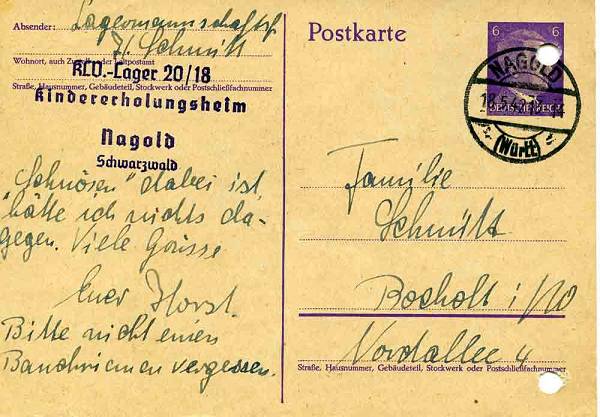 Absender: Lagermannschaftsf.
H. Schmitt
Wohnort, auch Zustell- oder Leitpostamt
KLV.-Lager 20/18
Straße, Hausnummer, Gebäudeteil, Stockwerk oder Postschließfachnummer
Kindererholungsheim
Nagold
Schwarzwald
Schnösen" dabei ist,
hätte ich nichts da-
gegen. Viele Grüsse
Euer Horst.
Bitte nicht einen
Bauchriemen vergessen.
Postkarte
6 6
DEUTSCHES REICH
NAGOLD
(Württ)
Familie
Schmitt
Bocholt i/W
Nordallee 4
Straße, Hausnummer, Gebäudeteil, Stockwerk oder Postschließfachnummer